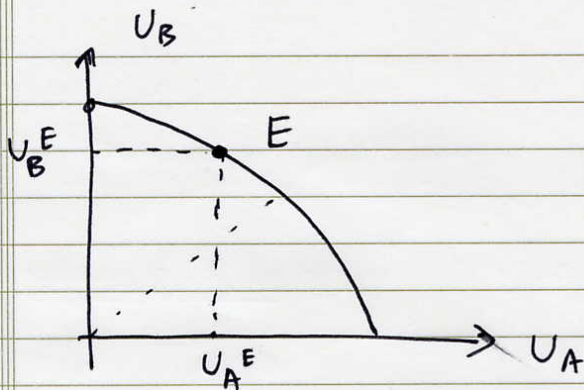 U_B
E
U_B^E
U_A^E
U_A